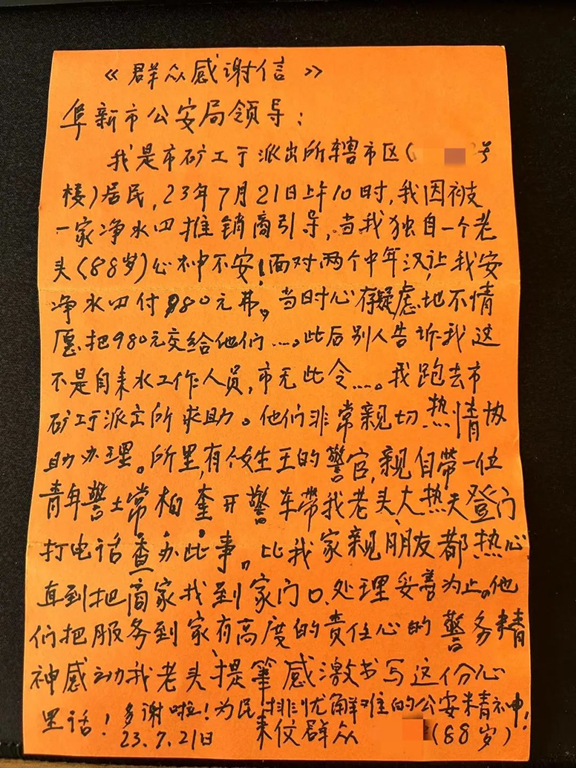 《群众感谢信》
阜新市公安局领导：
我是市矿工于派出所辖市区(号
楼)居民，23年7月21日上午10时，我因被
一家净水四推销商引导，当我独自一个老
头(88岁)心神不安！面对两个中年汉，让我安
净水四付980元弗，当时心存疑虑地不情
愿把980元交给他们……。此后别人告诉我这
不是自来水工作人员，市无此令……。我跑去市
矿工于派出所求助。他们非常亲切、热情协
助办理。所里，有个姓王的警官，亲自带一位
青年警士常柏奎开警车带我老头大热天登门
打电话查办此事。比我家亲朋友都热心
直到把商家找到家门口、处理妥善为止。他
们把服务到家有高度的责任心的警务精
神感动我老头提筆感激书写这份心
里话！多谢啦！为民排忧解难的公安精神！
23.7.21日 来仪群众 (88岁)